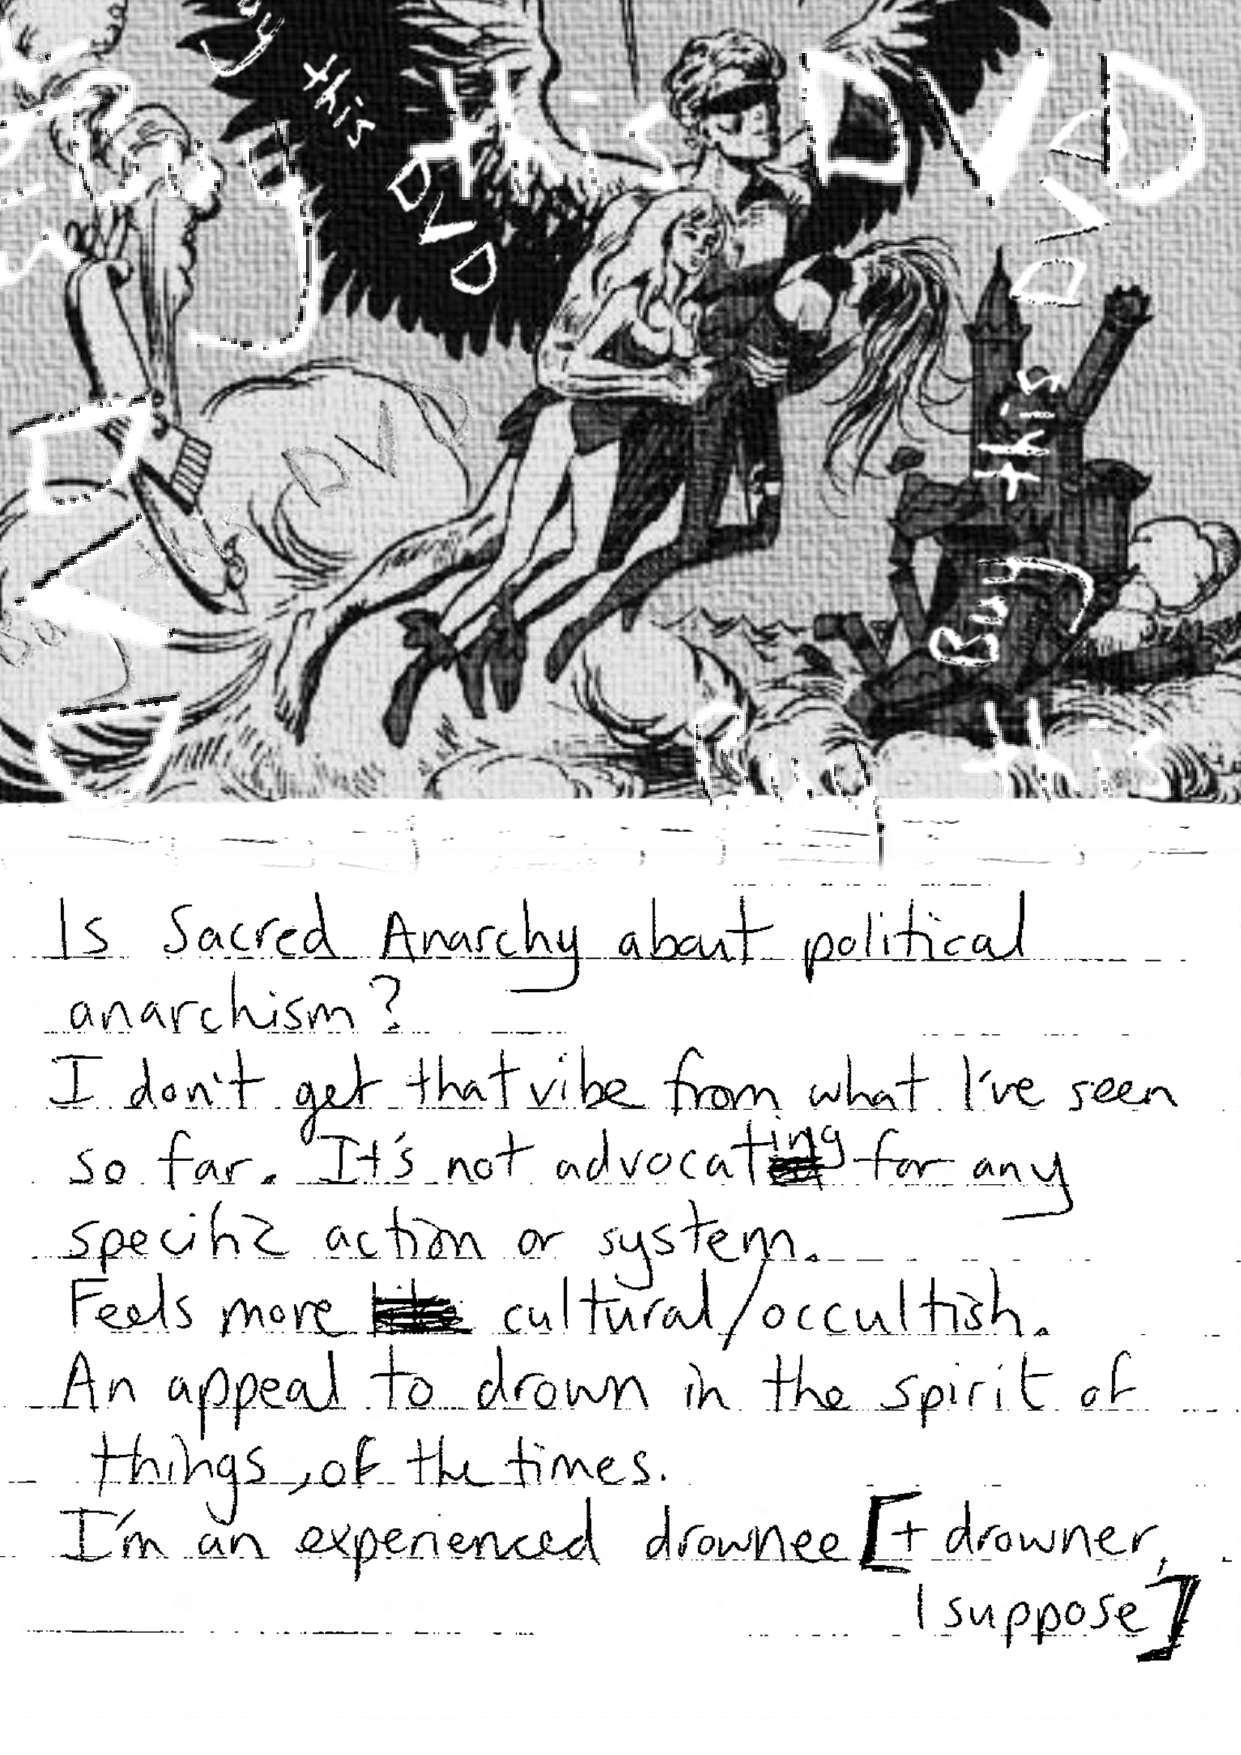 Buy this DVD
Buy this DVD
this DVD
DVD
Buy this DVD
Buy this
Is Sacred Anarchy about political
anarchism?
I don't get that vibe from what I've seen
so far. It's not advocating for any
specific action or system.
Feels more cultural/occultish.
An appeal to drown in the spirit of
things, of the times.
I'm an experienced drownee [+ drowner,
I suppose]